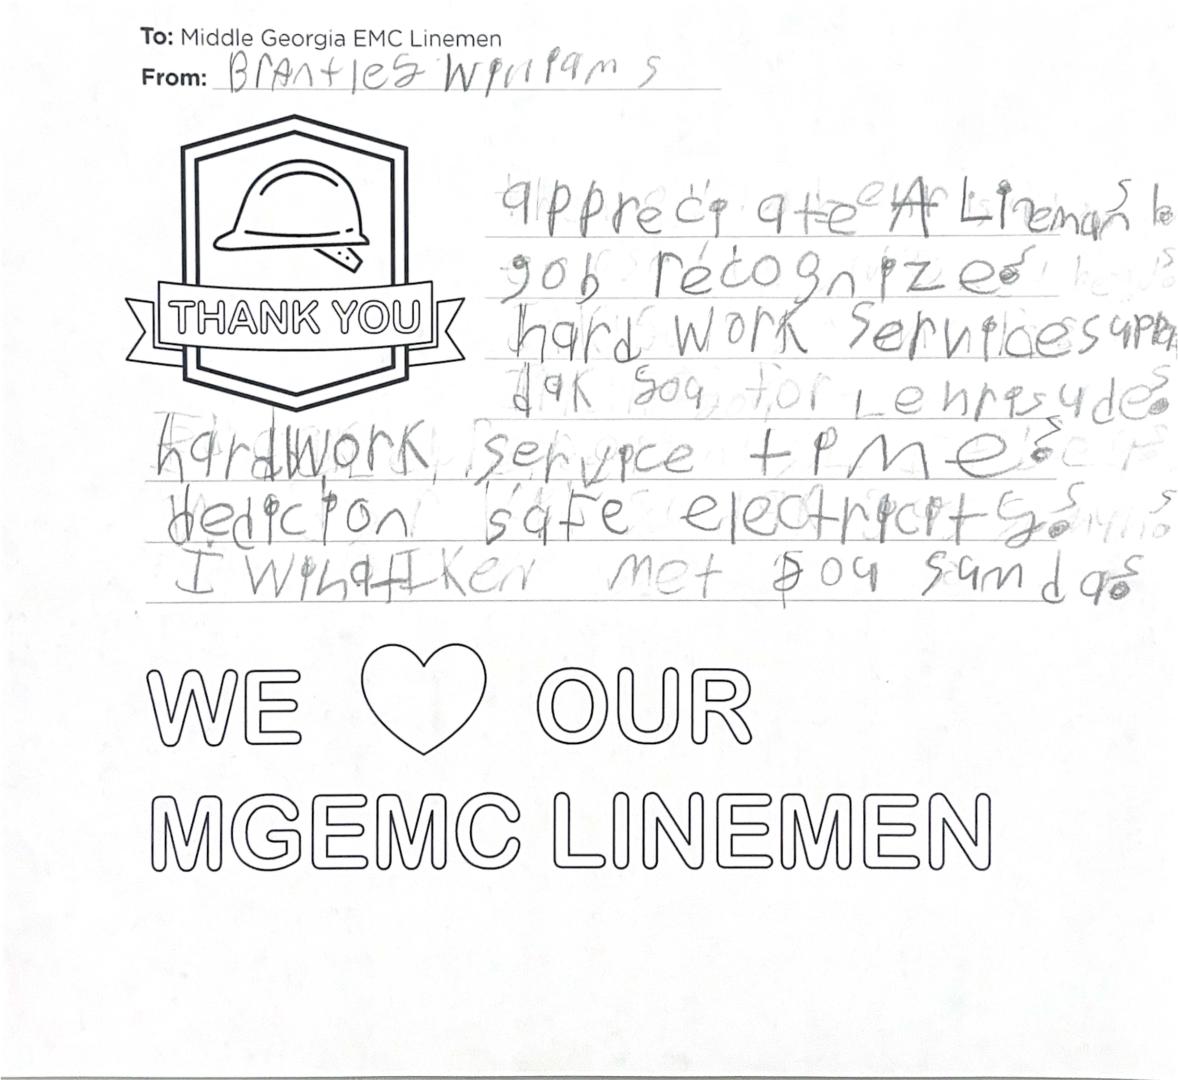 To: Middle Georgia EMC Linemen
From: Brantley Williams
THANK YOU
appreciate A Lineman
gob recognize
hard work Services
dak you for
hardwork service time
dedicion safe electricity
I met you sumda
WE OUR
MGEMC LINEMEN